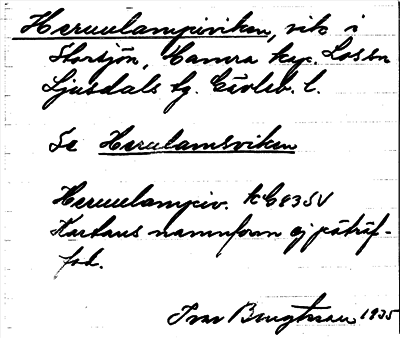 Herrulampiviken, vik i
Storsjön, Hamra kap. Los sn
Ljusdals tg. Gävleb. l.
Se Herrulamsviken
Herrulampiv. k G83SV
Kartans namnform ej påträf-
fad.
Ivar Bengtsson 1935